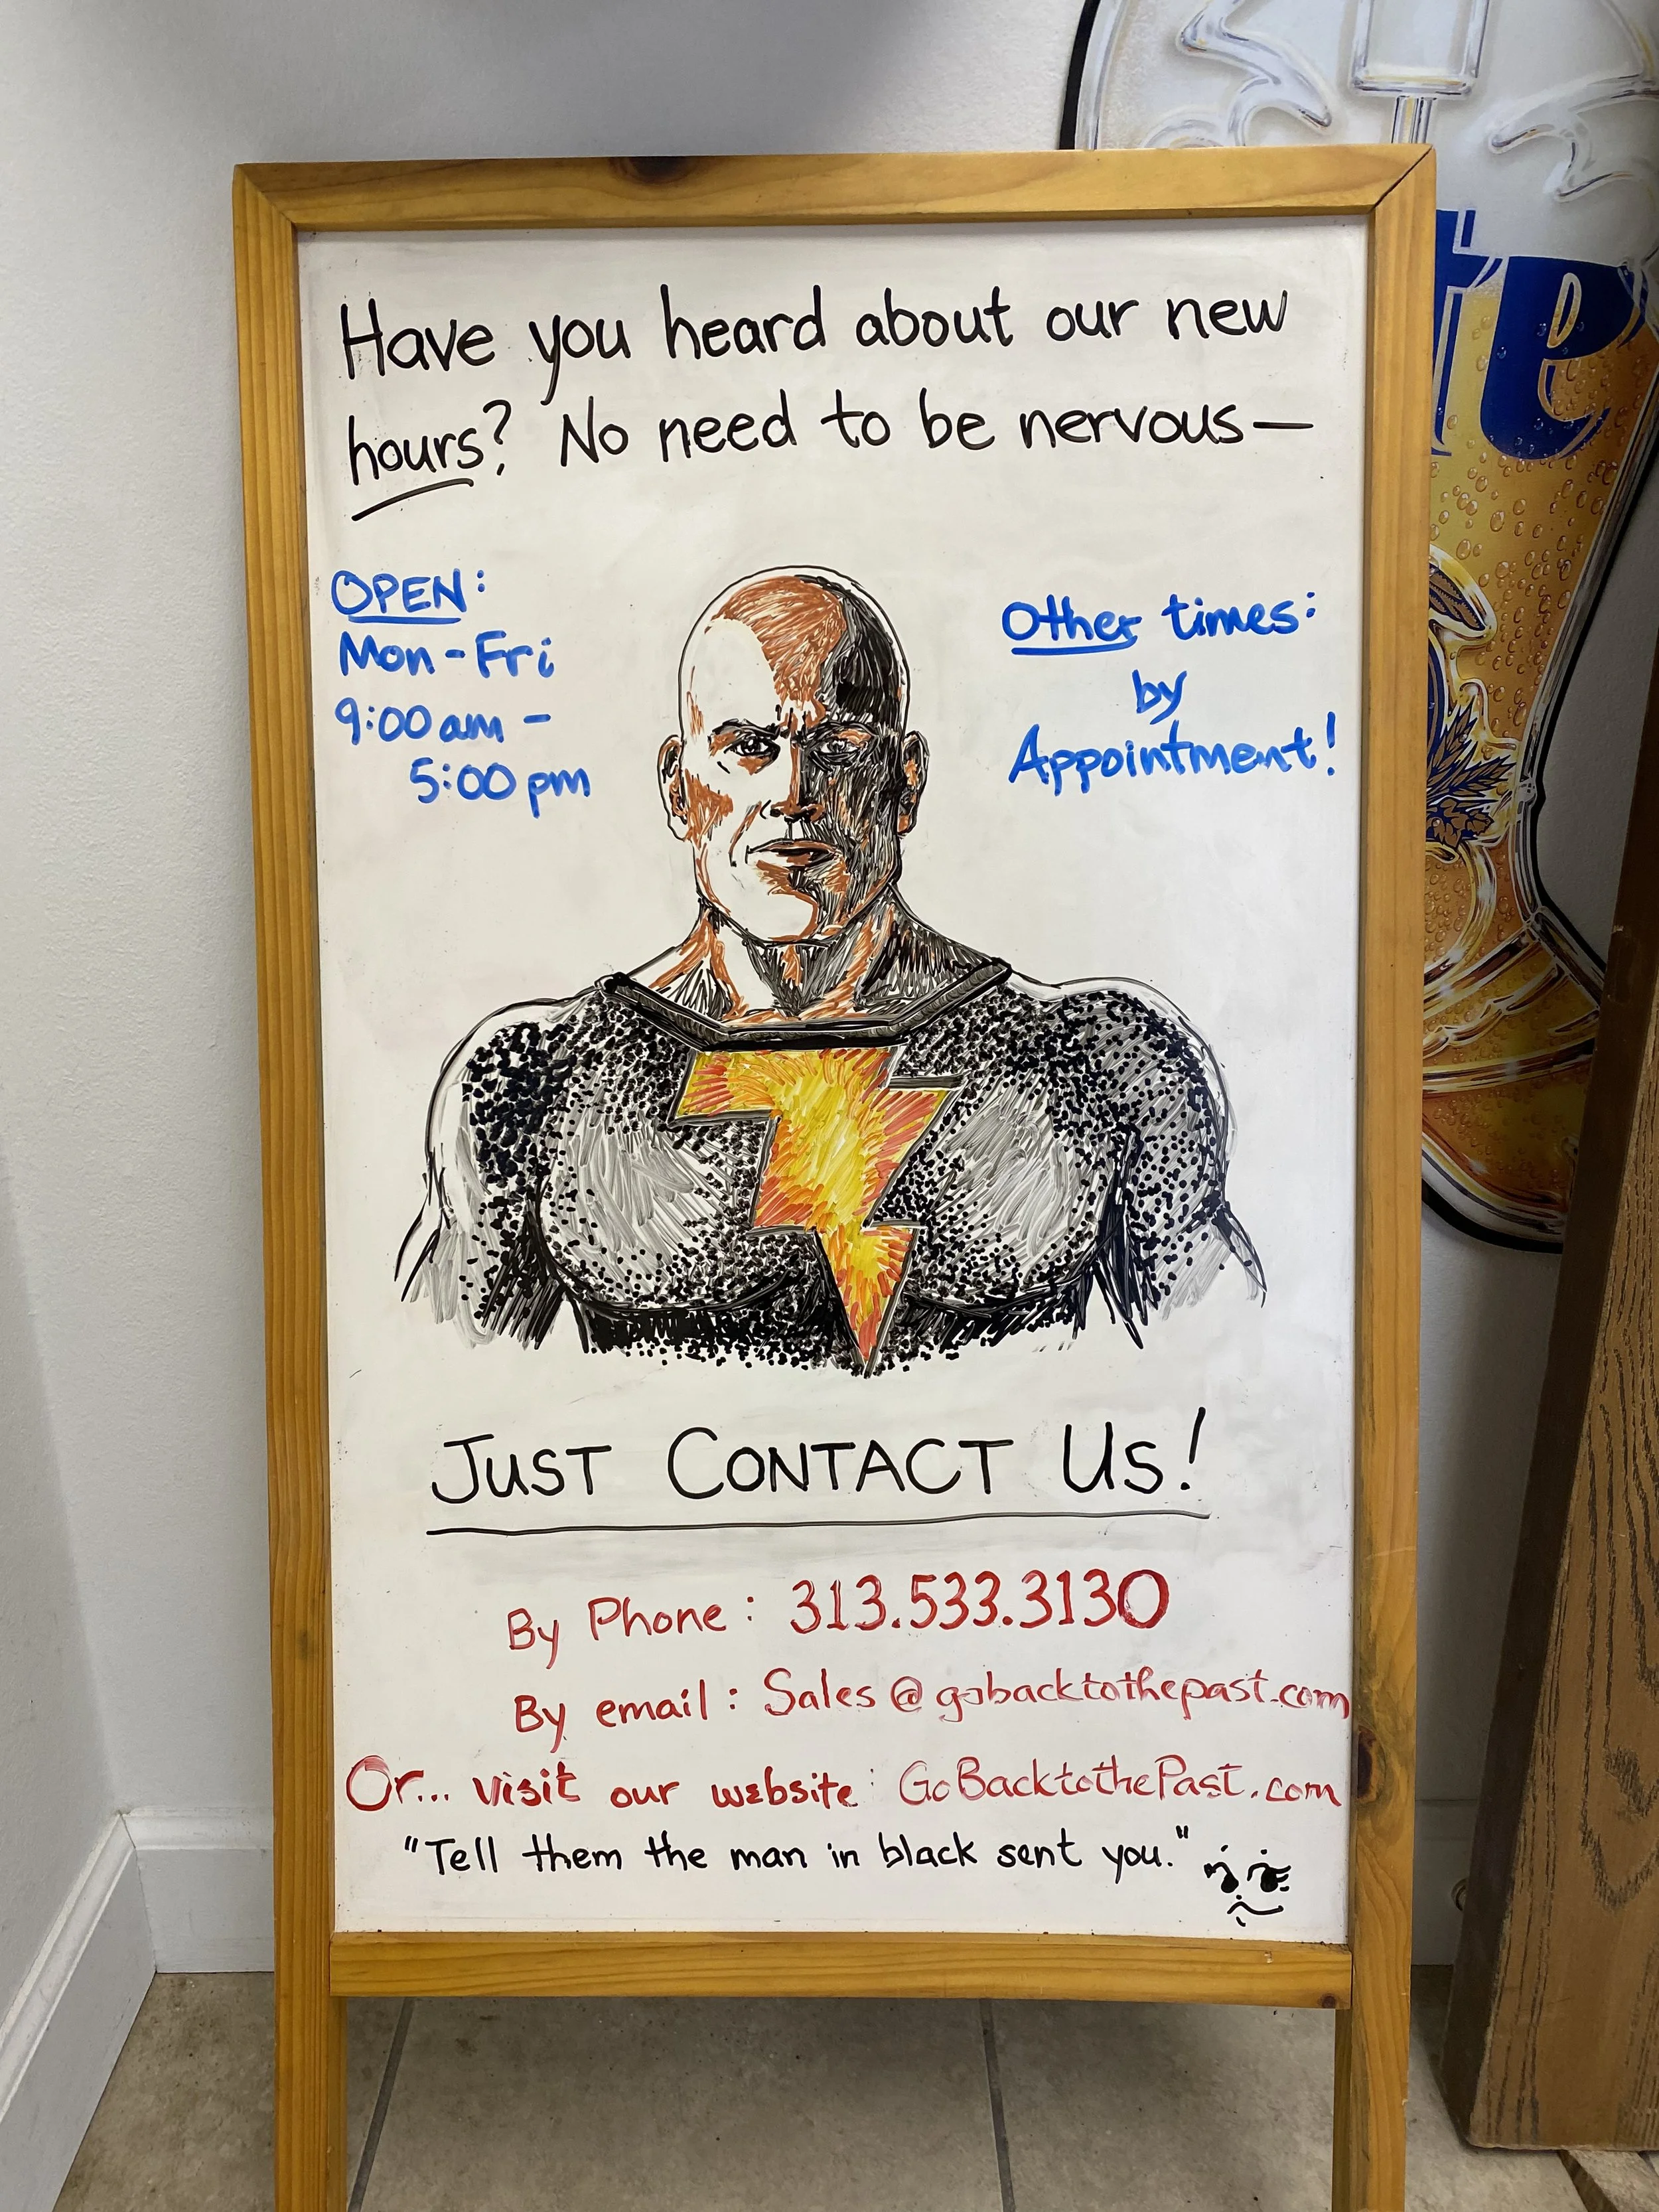 Have you heard about our new
hours? No need to be nervous—
OPEN:
Mon-Fri
9:00am -
5:00pm
Other times:
by
Appointment!
JUST CONTACT US!
By Phone: 313.533.3130
By email: Sales@gobacktothepast.com
Or... visit our website: GoBacktothePast.com
"Tell them the man in black sent you."